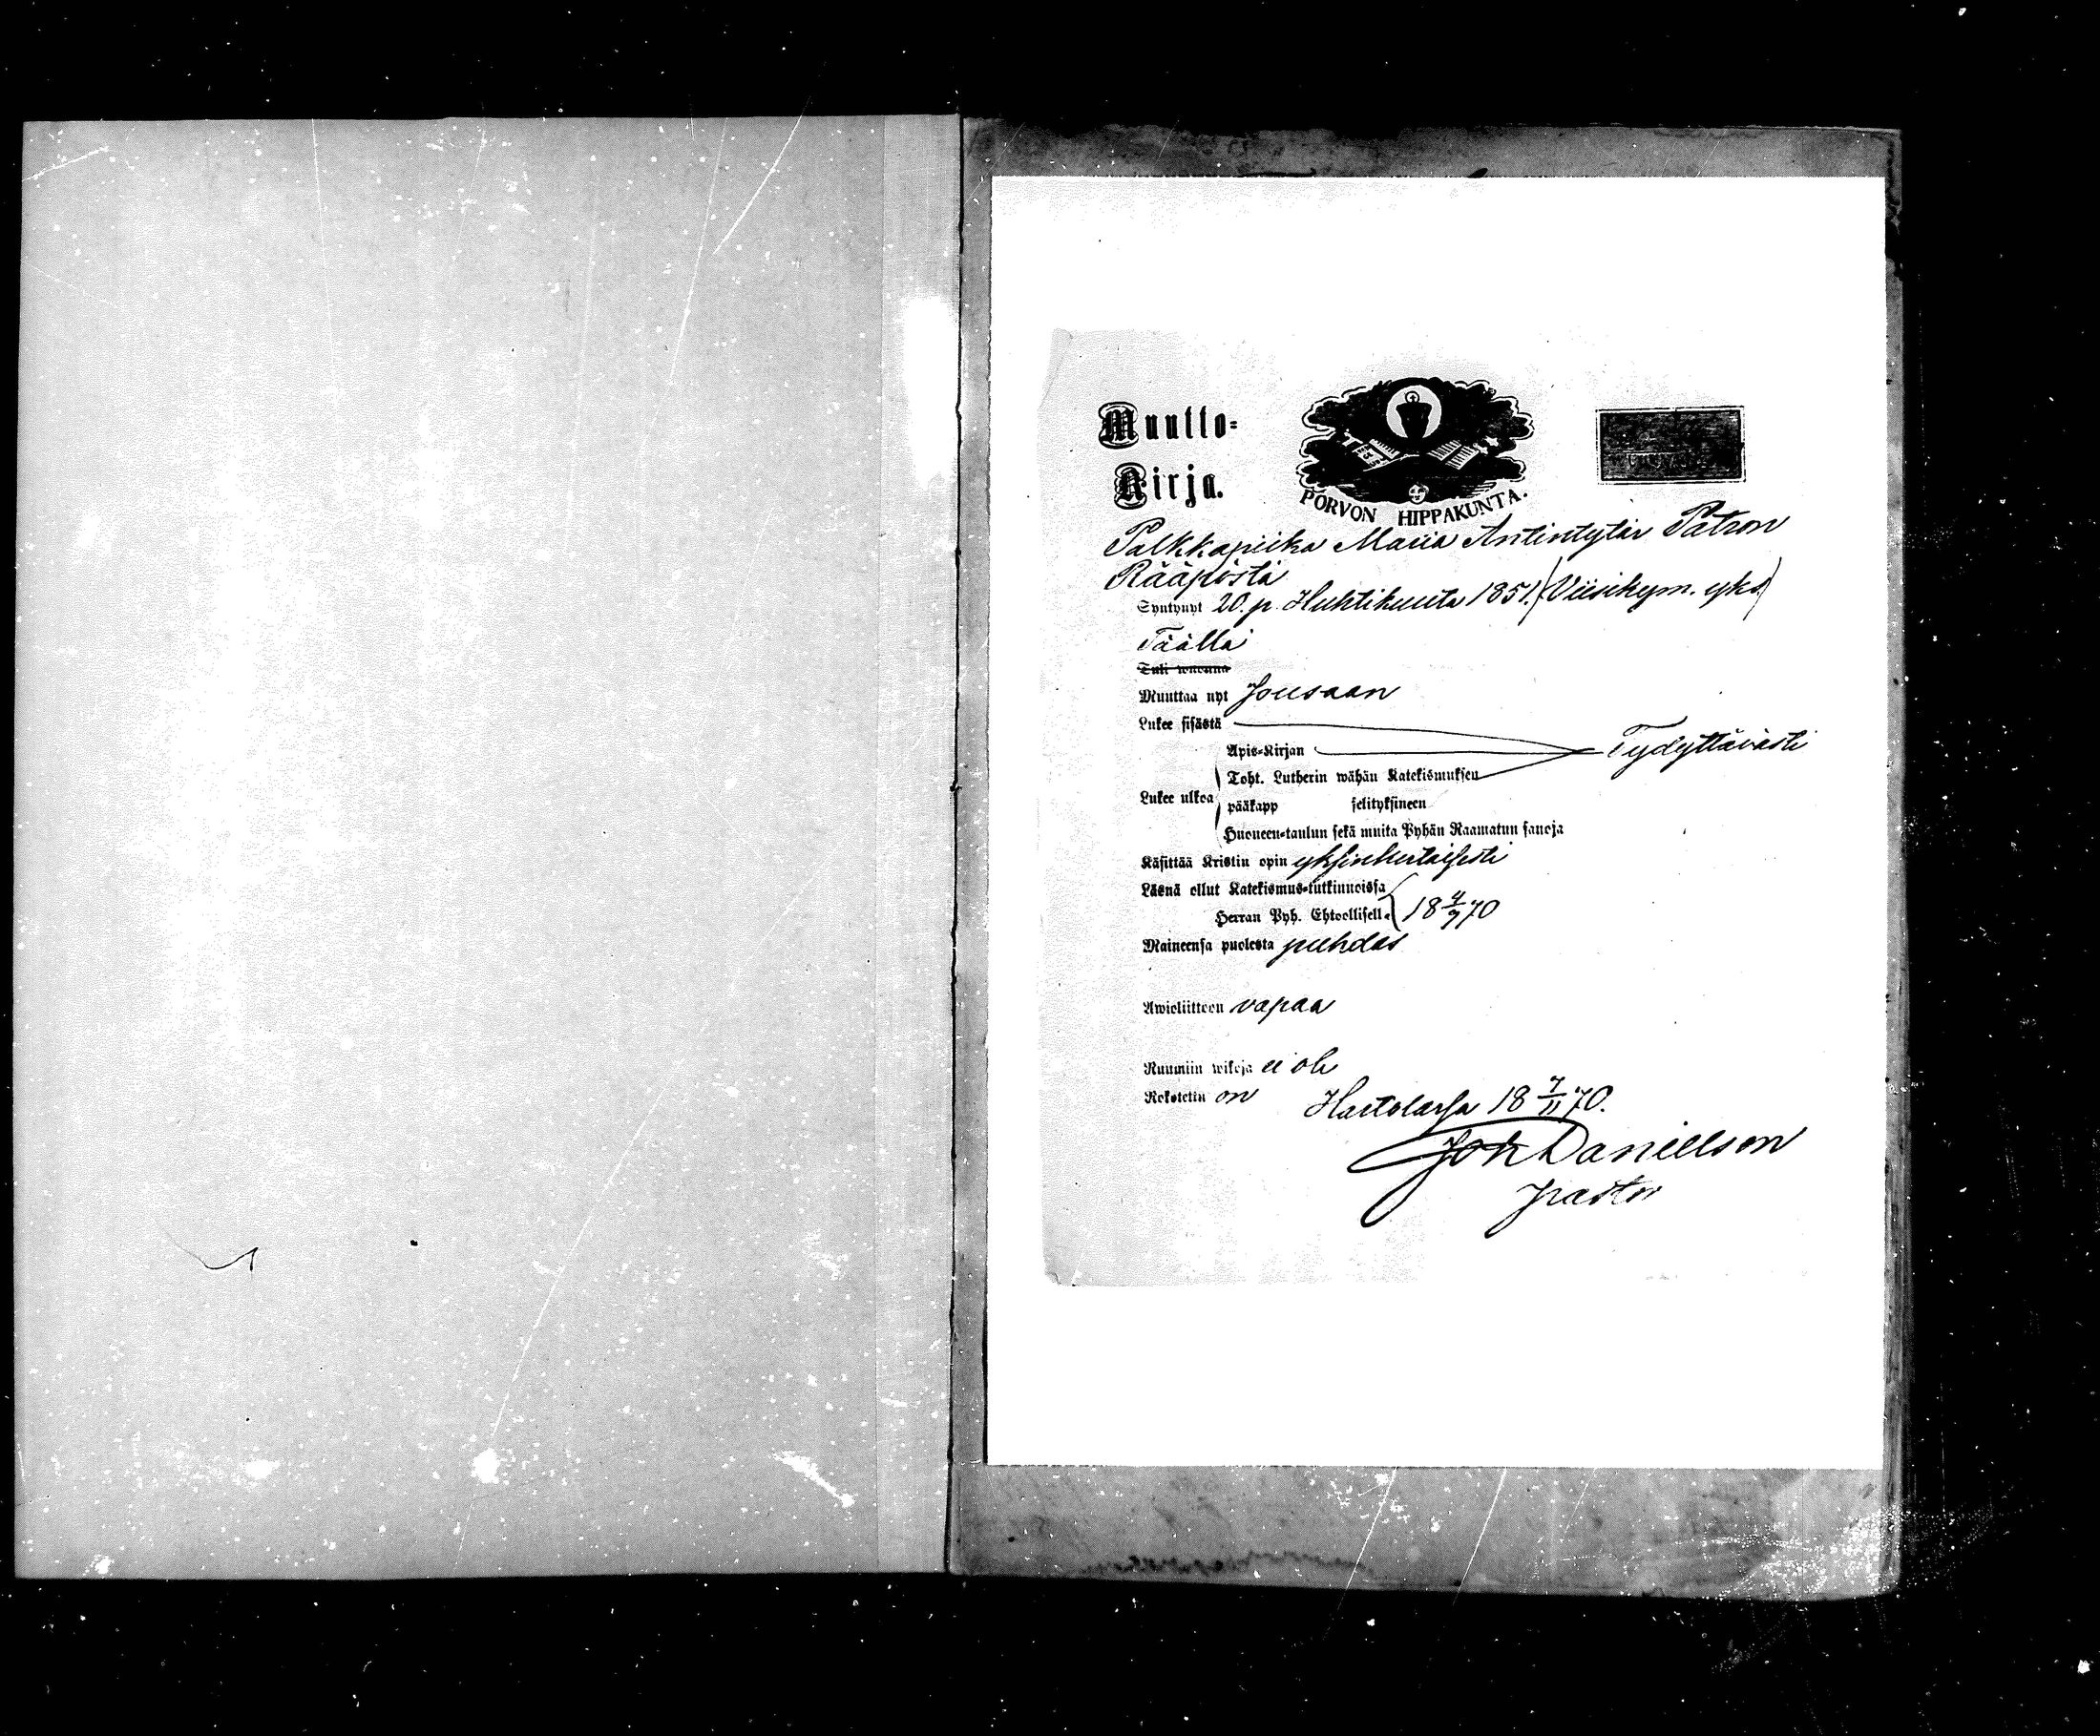 Muutto-
Kirja.
PORVON HIPPAKUNTA.
Palkkapiika Maria Antintytär Patron
Rääpöstä
Syntynyt 20. p. Huhtikuuta 1851. (Viisikym. yks)
Täällä
Tuli wuonna
Muuttaa nyt Jousaan
Lukee sisästä
Apis-Kirjan Tydyttäwästi
Toht. Lutherin wähän Katekismuksen
Lukee ulkoa
pääkapp selityksineen
Huoneen-taulun sekä muita Pyhän Raamatun sanoja
Käsittää Kristin opin yksinkertaisesti
Läsnä ollut Katekismus-tutkinnoissa
Herran Pyh. Ehtoollisella 18 4/9 70
Maineensa puolesta puhdas
Awioliittoon vapaa
Ruumiin wikoja ei ole
Rokotettu on Hartolassa 18 7/11 70.
Joh Danielson
pastor